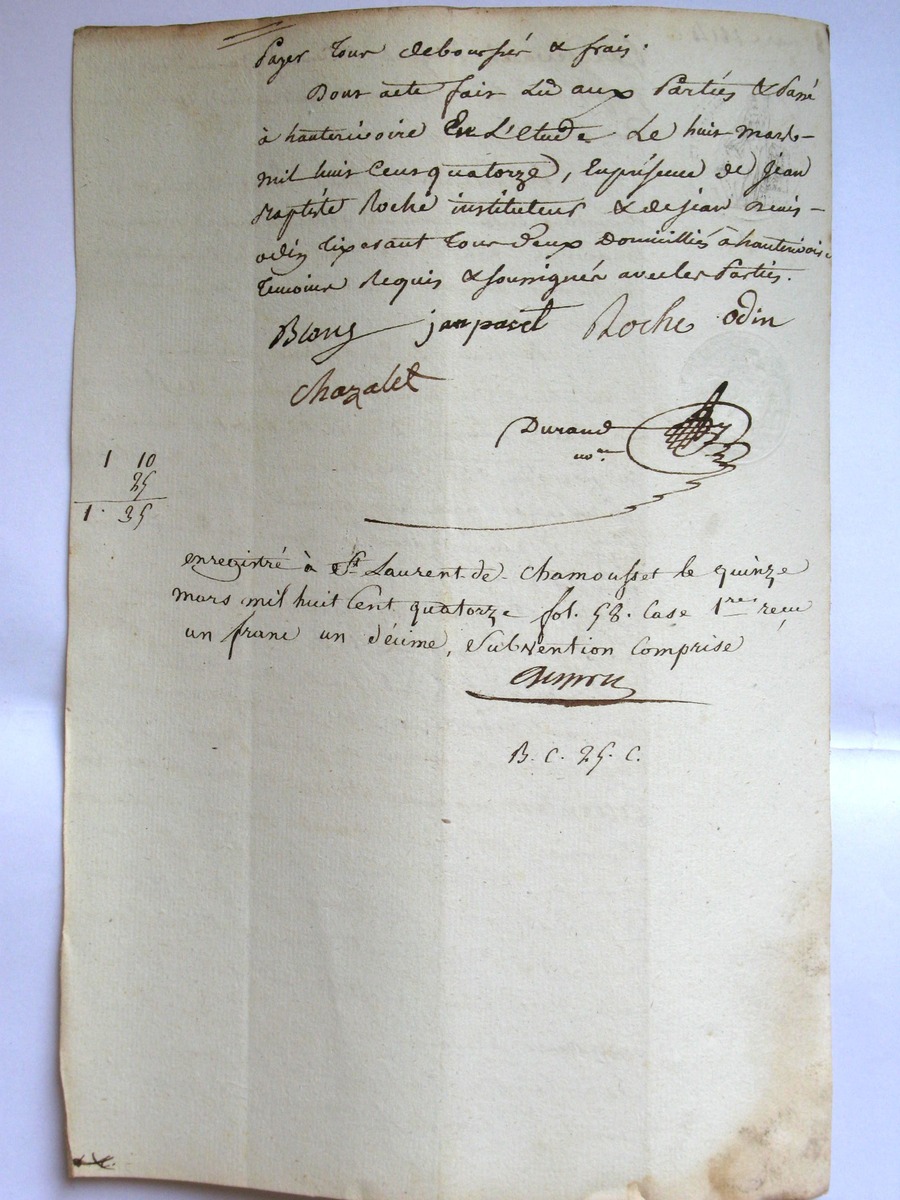 Payer tous deboursés & frais.
Dont acte fait Lu aux Parties & Passé
à hauterivoire En L'étude Le huit mars
mil huit Cent quatorze, En présence de jean
Baptiste Roche instituteur & de jean
odin tous d'eux Domiciliés à hauterivoire
temoins Requis & soussignés avec les Parties.
Blanc jan Roche odin
Chazalet
Durand
nore
1 10
25
1. 35
enregistré à St Laurent de Chamousset le quinze
mars mil huit Cent quatorze fol. 58. Case 1re reçu
un franc un décime, Subvention Comprise
B. C. 25. C.